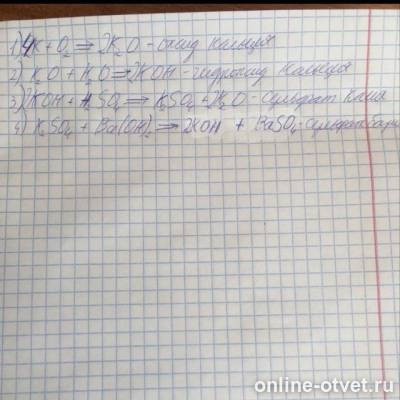 1) 4K + O₂ ⇒ 2K₂O - оксид кальция
2) K₂O + H₂O ⇒ 2KOH - гидроксид кальция
3) 2KOH + H₂SO₄ ⇒ K₂SO₄ + 2H₂O - сульфат калия
4) K₂SO₄ + Ba(OH)₂ ⇒ 2KOH + BaSO₄ - сульфат бари
online-otvet.ru